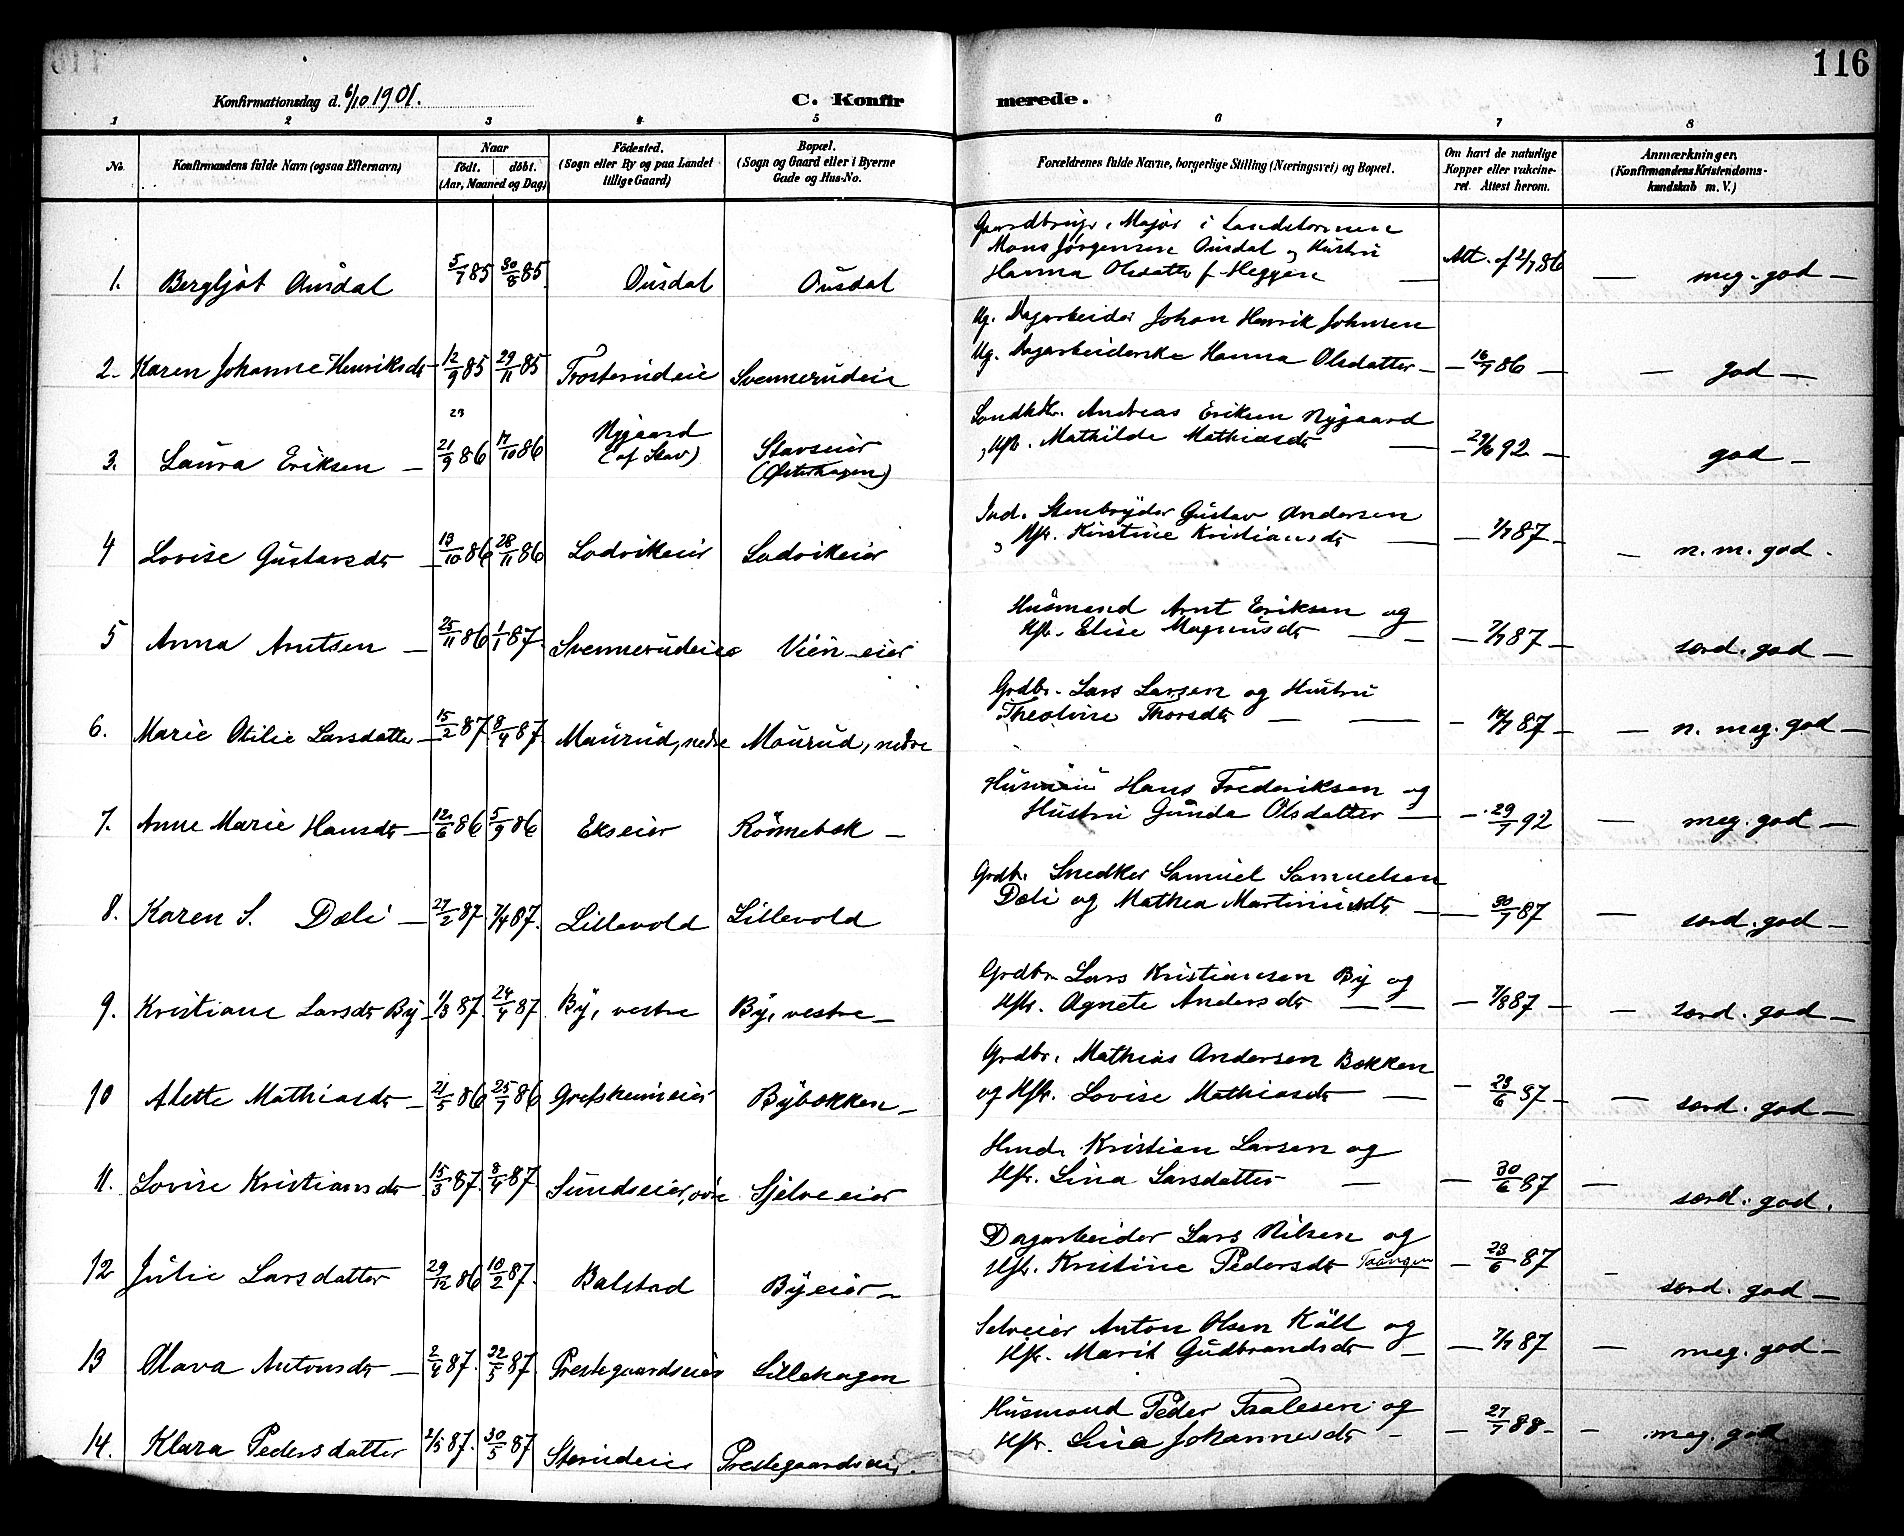 116
Konfirmationsdag d. 6/10 1901.
C. Konfirmerede.
1 2 3 4 5 6 7 8
No.
Konfirmandens fulde Navn (ogsaa Efternavn)
Naar
födt. döbt.
(Aar, Maaned og Dag)
Födested.
(Sogn eller By og paa Landet
tillige Gaard)
Bopæl.
(Sogn og Gaard eller i Byerne
Gade og Hus-No.
Forældrenes fulde Navne, borgerlige Stilling (Næringsvei) og Bopæl.
Om havt de naturlige
Kopper eller vakcine-
ret. Attest herom.
Anmærkninger.
(Konfirmandens Kristendoms-
kundskab m. V.)
Gaardbruger, Major i Landstormen
Mons Jörgensen Ousdal og Hustru
1. Bergljót Ousdal 5/7 85 30/8 85 Ousdal Ousdal Hanna Olsdatter f. Heggen — Att. af 2/7 86 — meg. god —
Ug. Dagarbeider Johan Henrik Johnsen
2. Karen Johanne Henriksdr 12/9 85 29/11 85 Trosterudeie Svennerudeie Ug. Dagarbeiderske Hanna Olsdatter — 16/7 86 — god —
23
Landhdl. Andreas Eriksen Nygaard
3. Laura Eriksen — 21/9 86 17/10 86 Nygaard (af Stav) Stavseier (Østerhagen) Hfr. Mathilde Mathiasdr — 29/6 92 — god —
Ind. Stenbryder Gustav Andersen
4 Lovise Gustavsdr 13/10 86 28/11 86 Lodvikeier Lodvikeier Hfr. Kirstine Kristiansdr — 7/7 87 — n. m. god.
Husmand Arnt Eriksen og
5 Anna Arntsen — 25/11 86 1/1 87. Svennerudeie Vien-eier Hfr. Elise Magnusdr — 7/7 87 — særd. god —
Grdbr. Lars Larsen og Hustru
6. Marie Otilie Larsdatter 15/2 87 8/4 87 Maurud, nedre Maurud, nedre Theoline Thorsdr — 14/7 87 — n. meg. god —
Hans Frederiksen og
7. Anne Marie Hansdr 12/6 86 5/9 86 Ekseier Hustru Gunda Olsdatter — 29/7 92 — meg. god —
Grdbr. Snedker Samuel Samuelsen
8. Karen S. Dæli — 27/2 87. 7/4 87. Lillevold Lillevold Dæli og Mathea Martiniusdr — 30/7 87 — særd. god —
Grdbr. Lars Kristiansen By og
9. Kristiane Larsdr By 1/3 87. 24/4 87 By, vestre By, vestre — Hfr. Agnete Andersdr — 7/8 87 — særd. god —
Grdbr. Mathias Andersen Bækken
10 Alette Mathiasdr — 21/5 86 25/7 86 Grefsheimeier Bybækken — og Hfr. Lovise Mathiasdr — 23/6 87 — særd. god —
Hmd. Kristian Larsen og
11. Lovise Kristiansdr 15/3 87. 8/4 87 Sundseier, øvre Sjelveeier Hfr. Lina Larsdatter — 30/6 87 — særd. god.
Dagarbeider Lars Nilsen og
12 Julie Larsdatter 29/12 86 10/2 87. Balstad Byeier — Hfr. Kristine Pedersdr Taangen — 23/6 87 — særd. god —
Selveier Anton Olsen Käll og
13 Olava Antonsdr — 2/4 87. 22/5 87 Prestegaardseier Lillehagen Hfr. Marit Gudbrandsdr — 7/7 87 — meg. god —
Husmand Peder Taalesen og
14. Klara Pedersdatter 2/5 87. 30/5 87 Sterudeie Prestegaardseier. Hfr. Lina Johannesdr — 27/7 88 — meg. god